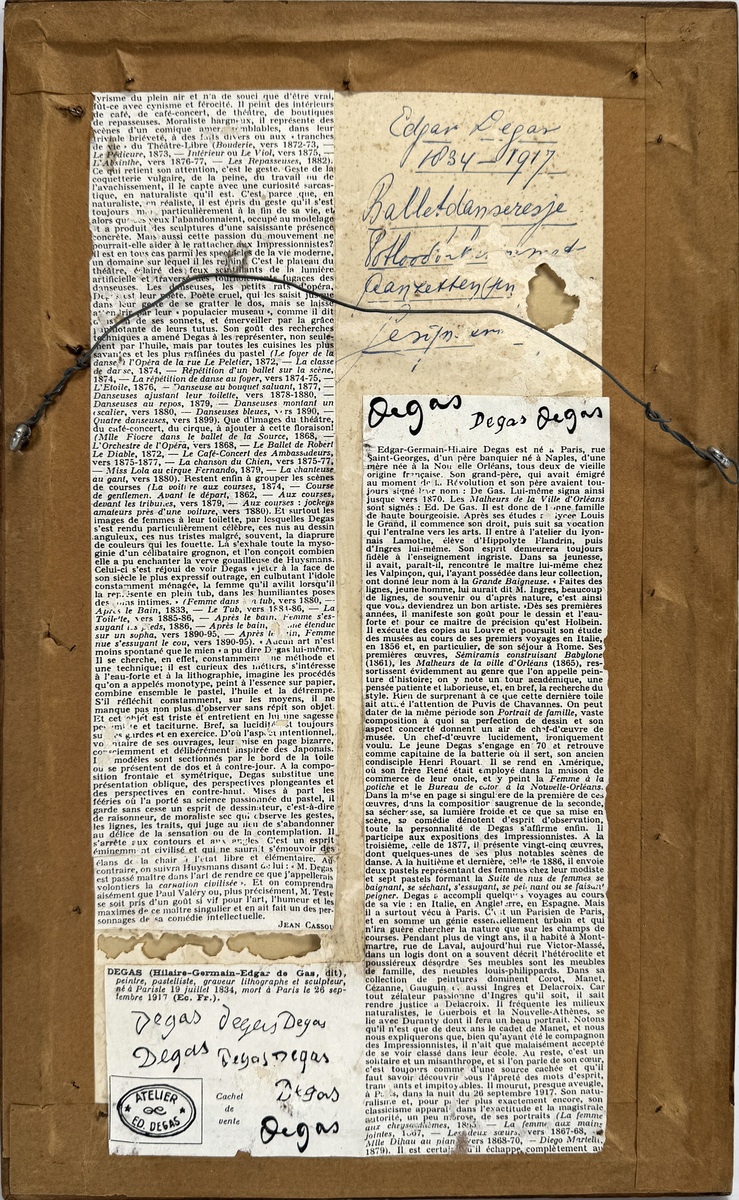 tyrisme du plein air et n'a de souci que d'être vrai,
fût-ce avec cynisme et férocité. Il peint des intérieurs
de café, de café-concert, de théâtre, de boutiques
de repasseuses. Moraliste hargneux, il représente des
scènes d'un comique amer, semblables, dans leur
triviale brièveté, à des faits divers ou aux « tranches
de vie » du Théâtre-Libre (Bouderie, vers 1872-73, —
Le Pédicure, 1873, — Intérieur ou Le Viol, vers 1875, —
L'Absinthe, vers 1876-77, — Les Repasseuses, 1882).
Ce qui retient son attention, c'est le geste. Geste de la
coquetterie vulgaire, de la peine, du travail ou de
l'avachissement, il le capte avec une curiosité sarcas-
tique, en naturaliste qu'il est. C'est parce que, en
naturaliste, en réaliste, il est épris du geste qu'il s'est
toujours et particulièrement à la fin de sa vie, et
alors que ses yeux l'abandonnaient, occupé au modelage
et a produit des sculptures d'une saisissante présence
concrète. Mais aussi cette passion du mouvement ne
pourrait-elle aider à le rattacher aux Impressionnistes?
Il est en tous cas parmi les spectacles de la vie moderne,
un domaine sur lequel il les rejoint. C'est le plateau du
théâtre, éclairé des feux cuisants de la lumière
artificielle et traversé des tournoiements fugaces des
danseuses. Les danseuses, les petits rats d'opéra,
Degas est leur poète. Poète cruel, qui les saisit jusque
dans leur geste de se gratter le dos, mais se laisse
attendrir par leur « populacier museau », comme il dit
de ses sonnets, et émerveiller par la grâce
de leurs tutus. Son goût des recherches
techniques a amené Degas à les représenter, non seule-
ment par l'huile, mais par toutes les cuisines les plus
savantes et les plus raffinées du pastel (Le foyer de la
danse à l'Opéra de la rue Le Peletier, 1872, — La classe
de danse, 1874, — Répétition d'un ballet sur la scène,
1874, — La répétition de danse au foyer, vers 1874-75, —
L'Etoile, 1876, — Danseuse au bouquet saluant, 1877, —
Danseuses ajustant leur toilette, vers 1878-1880, —
Danseuses au repos, 1879, — Danseuses montant un
escalier, vers 1880, — Danseuses bleues, vers 1890, —
Quatre danseuses, vers 1899). Que d'images du théâtre,
du café-concert, du cirque, à ajouter à cette floraison!
(Mlle Fiocre dans le ballet de la Source, 1868, —
L'Orchestre de l'Opéra, vers 1868, — Le Ballet de Robert
Le Diable, 1872, — Le Café-Concert des Ambassadeurs,
vers 1875-1877, — La chanson du Chien, vers 1875-77,
— Miss Lola au cirque Fernando, 1879, — La chanteuse
au gant, vers 1880). Restent enfin à grouper les scènes
de courses (La voiture aux courses, 1874, — Course
de gentlemen. Avant le départ, 1862, — Aux courses,
devant les tribunes, vers 1879, — Aux courses : jockeys
amateurs près d'une voiture, vers 1880). Et surtout les
images de femmes à leur toilette, par lesquelles Degas
s'est rendu particulièrement célèbre, ces nus au dessin
anguleux, ces nus tristes malgré, souvent, la diaprure
de couleurs qui les fouette. Là s'exhale toute la myso-
ginie d'un célibataire grognon, et l'on conçoit combien
elle a pu enchanter la verve gouailleuse de Huysmans.
Celui-ci s'est réjoui de voir Degas « jeter à la face de
son siècle le plus expressif outrage, en culbutant l'idole
constamment ménagée, la femme qu'il avilit lorsqu'il
la représente en plein tub, dans les humiliantes poses
des soins intimes. » (Femme dans un tub, vers 1880, —
Après le Bain, 1833, — Le Tub, vers 1884-86, — La
Toilette, vers 1885-86, — Après le bain. Femme s'es-
suyant les pieds, 1886, — Après le bain, femme étendue
sur un sopha, vers 1890-95, — Après le bain, Femme
nue s'essuyant le cou, vers 1890-95). « Aucun art n'est
moins spontané que le mien » a pu dire Degas lui-même.
Il se cherche, en effet, constamment une méthode et
une technique; il est curieux des métiers, s'intéresse
à l'eau-forte et à la lithographie, imagine les procédés
qu'on a appelés monotype, peint à l'essence sur papier,
combine ensemble le pastel, l'huile et la détrempe.
S'il réfléchit constamment, sur les moyens, il ne
manque pas non plus d'observer sans répit son objet.
Et cet objet est triste et entretien en lui une sagesse
pessimiste et taciturne. Bref, sa lucidité est toujours
sur ses gardes et en exercice. D'où l'aspect intentionnel,
volontaire de ses ouvrages, leur mise en page bizarre,
consciemment et délibérément inspirée des Japonais.
Les modèles sont sectionnés par le bord de la toile
ou se présentent de dos et à contre-jour. A la compo-
sition frontale et symétrique, Degas substitue une
présentation oblique, des perspectives plongeantes et
des perspectives en contre-haut. Mises à part les
féeries où l'a porté sa science passionnée du pastel, il
garde sans cesse un esprit de dessinateur, c'est-à-dire
de raisonneur, de moraliste sec qui observe les gestes,
les lignes, les traits, qui juge au lieu de s'abandonner
au délice de la sensation ou de la contemplation. Il
s'arrête aux contours et aux angles. C'est un esprit
éminemment civilisé et qui ne saurait s'émouvoir des
élans de la chair à l'état libre et élémentaire. Au
contraire, on suivra Huysmans disant de lui : « M. Degas
est passé maître dans l'art de rendre ce que j'appellerais
volontiers la carnation civilisée ». Et on comprendra
aisément que Paul Valéry ou, plus précisément, M. Teste
se soit pris d'un goût si vif pour l'art, l'humeur et les
maximes de ce maître singulier et en ait fait un des per-
sonnages de sa comédie intellectuelle.
JEAN CASSOU
DEGAS (Hilaire-Germain-Edgar de Gas, dit),
peintre, pastelliste, graveur lithographe et sculpteur,
né à Paris le 19 juillet 1834, mort à Paris le 26 sep-
tembre 1917 (Ec. Fr.).
Degas Degas Degas
Degas Degas Degas
Degas
ATELIER
ED. DEGAS
Cachet
de
vente
Degas
Edgar Degas
1834-1917
Balletdanseresje
Potlood
Aanzetten
Degas Degas Degas
Edgar-Germain-Hilaire Degas est né à Paris, rue
Saint-Georges, d'un père banquier né à Naples, d'une
mère née à la Nouvelle Orléans, tous deux de vieille
origine française. Son grand-père, qui avait émigré
au moment de la Révolution et son père avaient tou-
jours signé leur nom : De Gas. Lui-même signa ainsi
jusque vers 1870. Les Malheurs de la Ville d'Orléans
sont signés : Ed. De Gas. Il est donc de bonne famille
de haute bourgeoisie. Après ses études au lycée Louis
le Grand, il commence son droit, puis suit sa vocation
qui l'entraîne vers les arts. Il entre à l'atelier du lyon-
nais Lamothe, élève d'Hippolyte Flandrin, puis
d'Ingres lui-même. Son esprit demeurera toujours
fidèle à l'enseignement ingriste. Dans sa jeunesse,
il avait, paraît-il, rencontré le maître lui-même chez
les Valpinçon, qui, l'ayant possédée dans leur collection,
ont donné leur nom à la Grande Baigneuse. « Faites des
lignes, jeune homme, lui aurait dit M. Ingres, beaucoup
de lignes, de souvenir ou d'après nature, c'est ainsi
que vous deviendrez un bon artiste. » Dès ses premières
années, il manifeste son goût pour le dessin et l'eau-
forte et pour ce maître de précision qu'est Holbein.
Il exécute des copies au Louvre et poursuit son étude
des musées au cours de ses premiers voyages en Italie,
en 1856 et, en particulier, de son séjour à Rome. Ses
premières œuvres, Sémiramis construisant Babylone
(1861), les Malheurs de la ville d'Orléans (1865), res-
sortissent évidemment au genre que l'on appelle pein-
ture d'histoire; on y note un tour académique, une
pensée patiente et laborieuse, et, en bref, la recherche du
style. Rien de surprenant à ce que cette dernière toile
ait attiré l'attention de Puvis de Chavannes. On peut
dater de la même période son Portrait de famille, vaste
composition à quoi sa perfection de dessin et son
aspect concerté donnent un air de chef-d'œuvre de
musée. Un chef-d'œuvre lucidement, ironiquement
voulu. Le jeune Degas s'engage en 70 et retrouve
comme capitaine de la batterie où il sert, son ancien
condisciple Henri Rouart. Il se rend en Amérique,
où son frère René était employé dans la maison de
commerce de leur oncle, et y peint la Femme à la
potiche et le Bureau de coton à la Nouvelle-Orléans.
Dans la mise en page si singulière de la première de ces
œuvres, dans la composition saugrenue de la seconde,
sa sécheresse, sa lumière froide et ce que sa mise en
scène, sa comédie dénotent d'esprit d'observation,
toute la personnalité de Degas s'affirme enfin. Il
participe aux expositions des Impressionnistes. A la
troisième, celle de 1877, il présente vingt-cinq œuvres,
dont quelques-unes de ses plus notables scènes de
danse. A la huitième et dernière, celle de 1886, il envoie
deux pastels représentant des femmes chez leur modiste
et sept pastels formant la Suite de nus de femmes se
baignant, se séchant, s'essuyant, se peignant ou se faisant
peigner. Degas a accompli quelques voyages au cours
de sa vie : en Italie, en Angleterre, en Espagne. Mais
il a surtout vécu à Paris. C'est un Parisien de Paris,
et en somme un génie essentiellement urbain et qui
n'ira guère chercher la nature que sur les champs de
courses. Pendant plus de vingt ans, il a habité à Mont-
martre, rue de Laval, aujourd'hui rue Victor-Massé,
dans un logis dont on a souvent décrit l'hétéroclite et
poussiéreux désordre. Ses meubles sont les meubles
de famille, des meubles louis-philippards. Dans sa
collection de peintures dominent Corot, Manet,
Cézanne, Gauguin et aussi Ingres et Delacroix. Car
tout zélateur passionné d'Ingres qu'il soit, il sait
rendre justice à Delacroix. Il fréquente les milieux
naturalistes, le Guerbois et la Nouvelle-Athènes, se
lie avec Duranty dont il fera un beau portrait. Notons
qu'il n'est que de deux ans le cadet de Manet, et nous
nous expliquerons que, bien qu'ayant été le compagnon
des Impressionnistes, il n'ait que malaisément accepté
de se voir classé dans leur école. Au reste, c'est un
solitaire et un misanthrope, et si l'on parle de son cœur,
c'est toujours comme d'une source cachée et qu'il
faut savoir découvrir sous l'âpreté des mots d'esprit,
tranchants et impitoyables. Il mourut, presque aveugle,
à Paris, dans la nuit du 26 septembre 1917. Son natu-
ralisme et, pour parler plus exactement encore, son
classicisme apparaît dans l'exactitude et la magistrale
autorité, un peu morose, de ses portraits (La femme
aux chrysanthèmes, 1865 — La femme aux mains
jointes, 1867, — Les deux sœurs, vers 1867-68, —
Mlle Dihau au piano, vers 1868-70, — Diego Martelli,
1879). Il est certain qu'il échappe complètement au